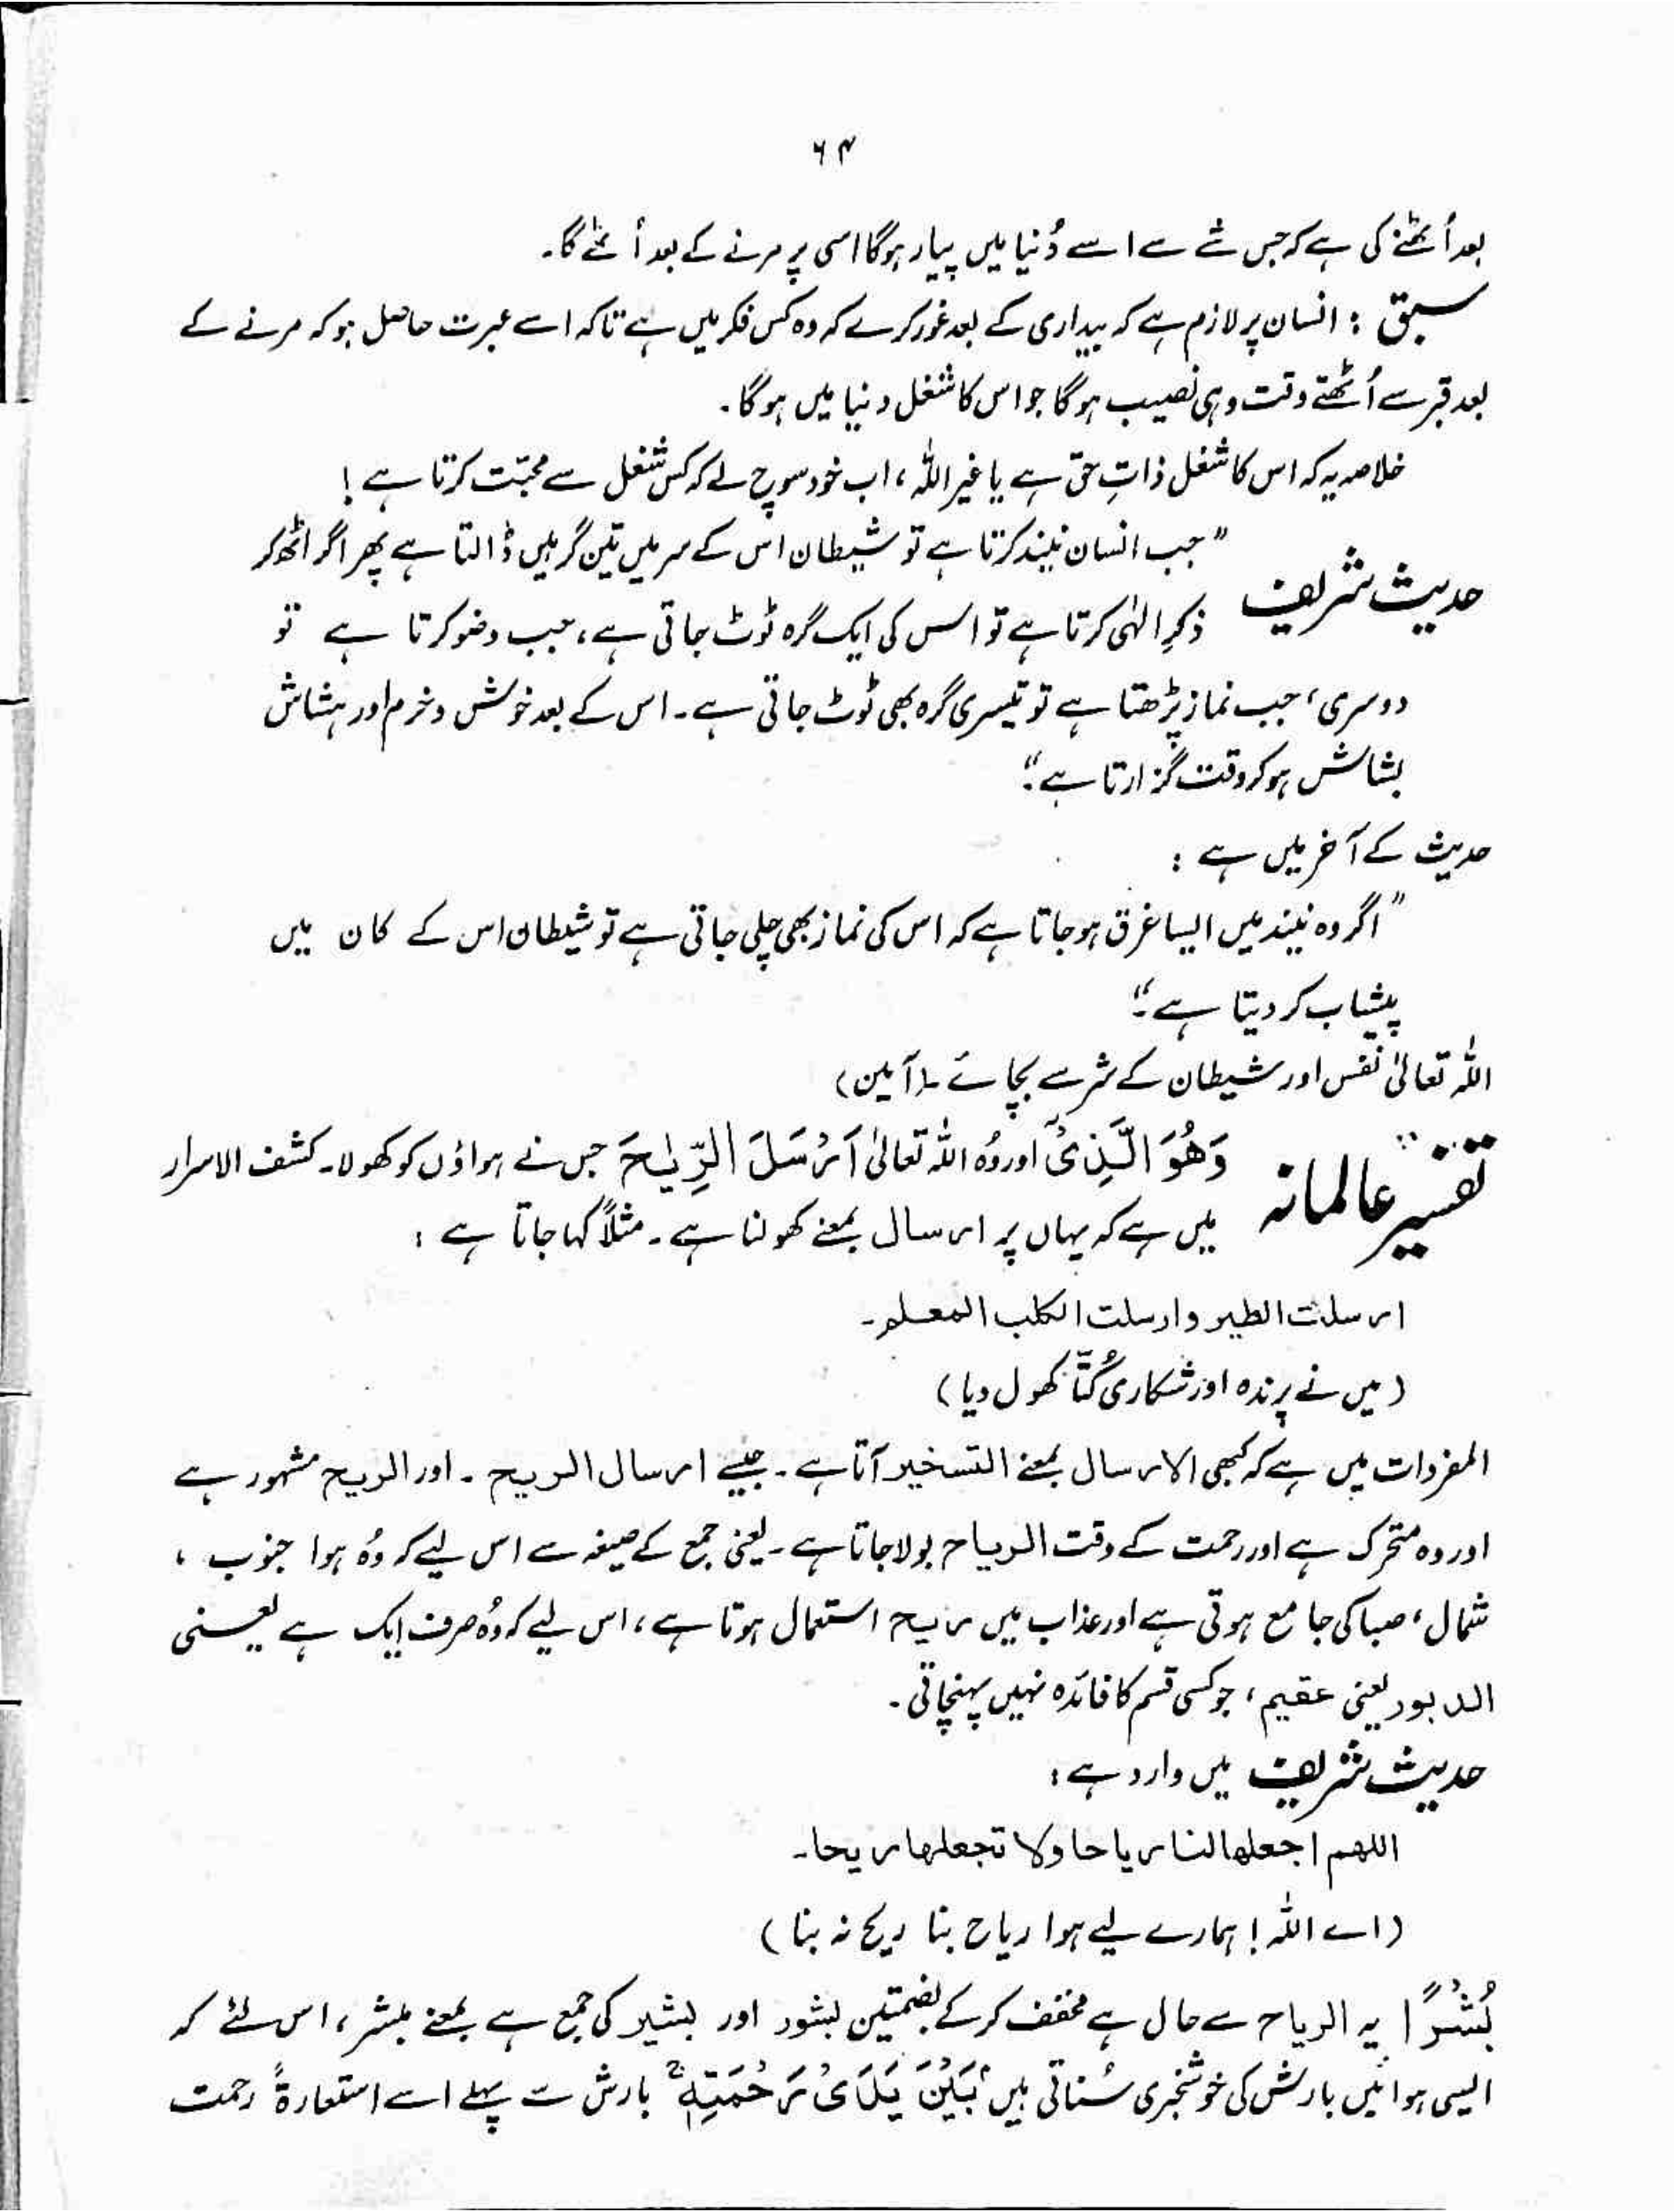 ۶۴
بعد اُٹھنے کی ہے کہ جس شے سے اسے دُنیا میں پیار ہوگا اسی پر مرنے کے بعد اُٹھے گا۔
سبق : انسان پر لازم ہے کہ بیداری کے بعد غور کرے کہ وہ کس فکر میں ہے تاکہ اسے عبرت حاصل ہو کہ مرنے کے
بعد قبر سے اُٹھتے وقت وہی نصیب ہوگا جو اس کا شغل دنیا میں ہوگا۔
خلاصہ یہ کہ اس کا شغل ذاتِ حق ہے یا غیر اللہ ، اب خود سوچ لے کہ کس شغل سے محبّت کرتا ہے !
حدیث شریف "جب انسان نیند کرتا ہے تو شیطان اس کے سر میں تین گرہیں ڈالتا ہے پھر اگر اٹھ کر
ذکرِ الٰہی کرتا ہے تو اس کی ایک گرہ ٹوٹ جاتی ہے ، جب وضو کرتا ہے تو
دوسری ، جب نماز پڑھتا ہے تو تیسری گرہ بھی ٹوٹ جاتی ہے۔ اس کے بعد خوش و خرم اور ہشاش
بشاش ہو کر وقت گزارتا ہے۔"
حدیث کے آخر میں ہے :
"اگر وہ نیند میں ایسا غرق ہو جاتا ہے کہ اس کی نماز بھی چلی جاتی ہے تو شیطان اس کے کان میں
پیشاب کر دیتا ہے۔"
اللہ تعالیٰ نفس اور شیطان کے شر سے بچائے۔ (آمین)
تفسیر عالمانہ وَهُوَ الَّذِیْٓ اور وُہ اللہ تعالیٰ اَرْسَلَ الرِّیٰحَ جس نے ہواؤں کو کھولا۔ کشف الاسرار
میں ہے کہ یہاں پر ارسال بمعنے کھولنا ہے۔ مثلاً کہا جاتا ہے :
ارسلت الطیر و ارسلت الکلب المعلم۔
(میں نے پرندہ اور شکاری کُتّا کھول دیا)
المفردات میں ہے کہ کبھی الارسال بمعنے التسخیر آتا ہے۔ جیسے ارسال الریح ۔ اور الریح مشہور ہے
اور وہ متحرک ہے اور رحمت کے وقت الریاح بولا جاتا ہے۔ یعنی جمع کے صیغہ سے اس لیے کہ وُہ ہوا جنوب ،
شمال ، صبا کی جامع ہوتی ہے اور عذاب میں ریح استعمال ہوتا ہے ، اس لیے کہ وُہ صرف ایک ہے یعنی
الدبور یعنی عقیم ، جو کسی قسم کا فائدہ نہیں پہنچاتی۔
حدیث شریف میں وارد ہے :
اللهم اجعلها لنا ریاحا ولا تجعلها ریحا۔
(اے اللہ ! ہمارے لیے ہوا ریاح بنا ریح نہ بنا)
بُشْرًا یہ الریاح سے حال ہے مخفف کرکے بضمتین بشور اور بشیر کی جمع ہے بمعنے مبشر ، اس لئے کہ
ایسی ہوائیں بارش کی خوشخبری سُناتی ہیں بَیْنَ یَدَیْ رَحْمَتِهٖ ۚ بارش سے پہلے اسے استعارۃً رحمت